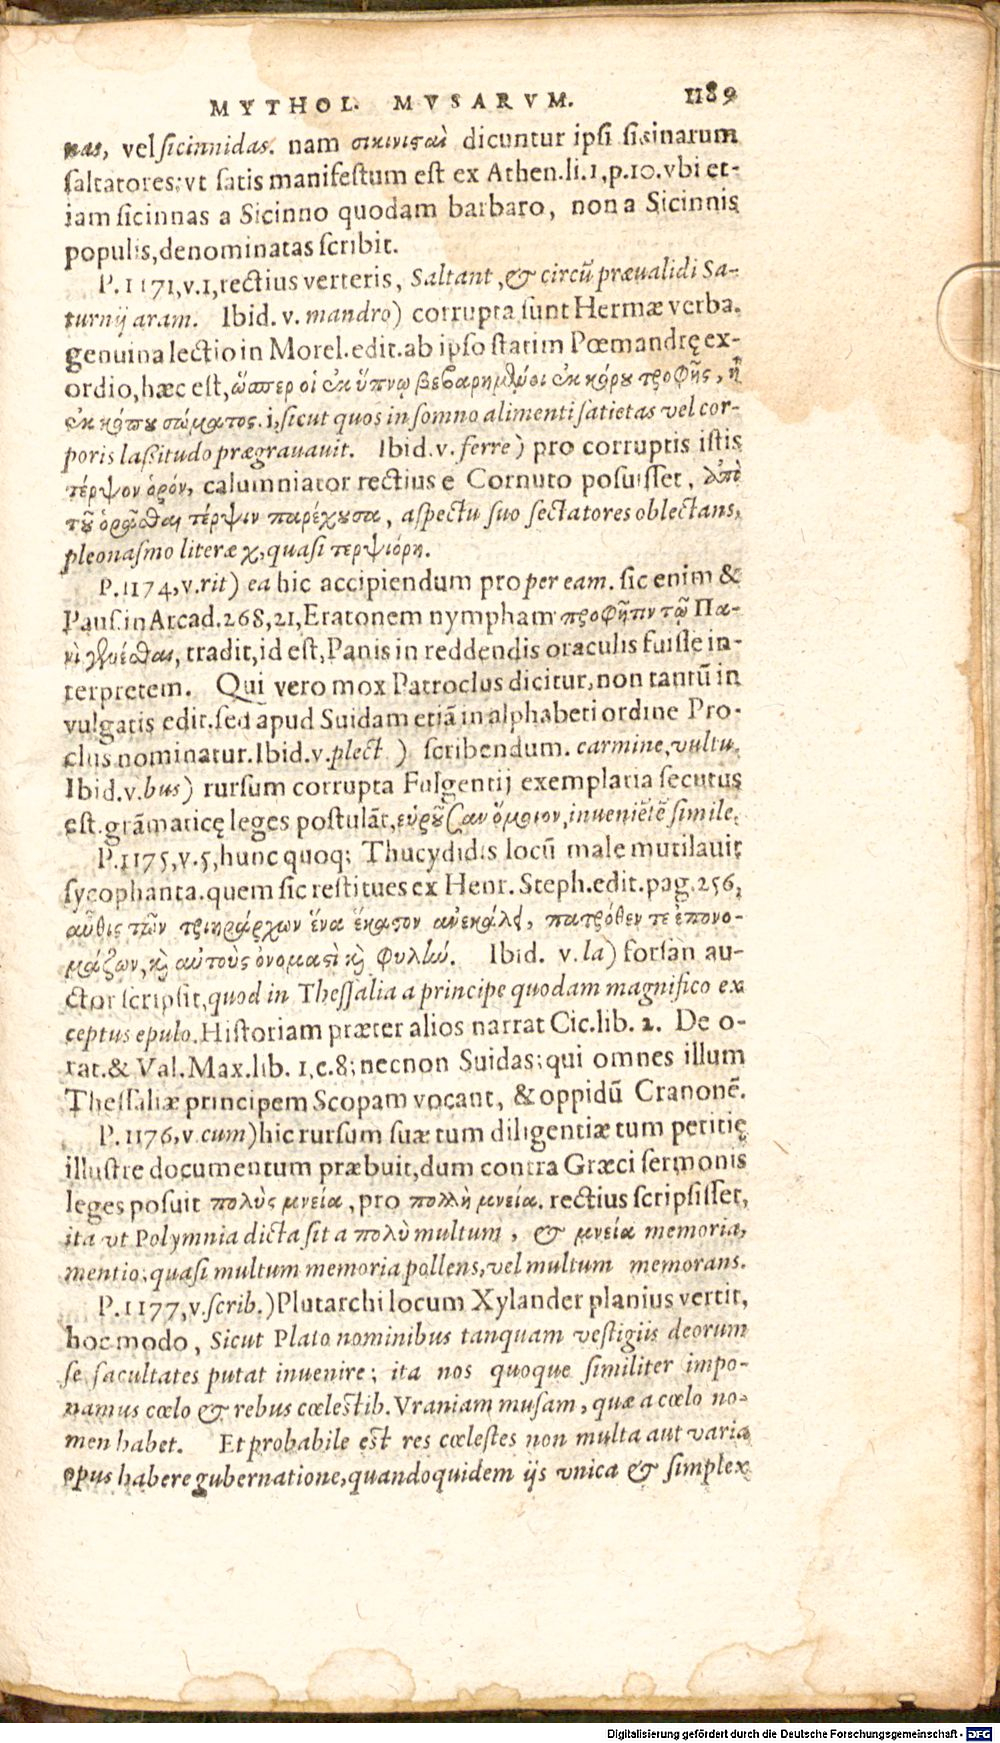 MYTHOL. MVSARVM. 1189
nas, vel sicinnidas. nam σικινισαὶ dicuntur ipsi sicinarum
saltatores; vt satis manifestum est ex Athen. li. 1, p. 10. vbi et-
iam sicinnas a Sicinno quodam barbaro, non a Sicinnis
populis, denominatas scribit.
P. 1171, v. 1, rectius verteris, Saltant, & circũ præualidi Sa-
turnij aram. Ibid. v. mandro) corrupta sunt Hermæ verba.
genuina lectio in Morel. edit. ab ipso statim Pœmandrę ex-
ordio, hæc est, ὥσπερ οἱ ἐκ ὕπνῳ βεβαρημένοι ἐκ κόρου τροφῆς, ἢ
ἐκ κόπου σώματος. i, sicut quos in somno alimenti satietas vel cor-
poris lassitudo prægrauauit. Ibid. v. ferre) pro corruptis istis
τέρψον ὁρόν, calumniator rectius e Cornuto posuisset, ἀπὸ
τοῦ ὁρᾶσθαι τέρψιν παρέχουσα, aspectu suo sectatores oblectans,
pleonasmo literæ χ, quasi τερψιόρη.
P. 1174, v. rit) ea hic accipiendum pro per eam. sic enim &
Paus. in Arcad. 268, 21, Eratonem nympham προφῆτιν τῷ Πα-
νὶ γενέσθαι, tradit, id est, Panis in reddendis oraculis fuisse in-
terpretem. Qui vero mox Patroclus dicitur, non tantũ in
vulgatis edit. sed apud Suidam etiã in alphabeti ordine Pro-
clus nominatur. Ibid. v. plect ) scribendum. carmine, vultu.
Ibid. v. bus) rursum corrupta Fulgentij exemplaria secutus
est. grãmaticę leges postulãt, εὑροῦσαν ὅμοιον, inueniẽtẽ simile.
P. 1175, v. 5, hunc quoq; Thucydidis locũ male mutilauit
sycophanta. quem sic restitues ex Henr. Steph. edit. pag. 256,
αὖθις τῶν τριηράρχων ἕνα ἕκαστον ἀνεκάλει, πατρόθεν τε ἐπονο-
μάζων, καὶ αὐτοὺς ὀνομαστὶ καὶ φυλήν. Ibid. v. la) forsan au-
ctor scripsit, quod in Thessalia a principe quodam magnifico ex
ceptus epulo. Historiam præter alios narrat Cic. lib. 2. De o-
rat. & Val. Max. lib. 1, c. 8; necnon Suidas; qui omnes illum
Thessaliæ principem Scopam vocant, & oppidũ Cranonẽ.
P. 1176, v. cum) hic rursum suæ tum diligentiæ tum peritię
illustre documentum præbuit, dum contra Græci sermonis
leges posuit πολὺς μνεία, pro πολλὴ μνεία. rectius scripsisset,
ita vt Polymnia dicta sit a πολὺ multum, & μνεία memoria,
mentio; quasi multum memoria pollens, vel multum memorans.
P. 1177, v. scrib.) Plutarchi locum Xylander planius vertit,
hoc modo, Sicut Plato nominibus tanquam vestigiis deorum
se facultates putat inuenire; ita nos quoque similiter impo-
namus cœlo & rebus cœlestib. Vraniam musam, quæ a cœlo no-
men habet. Et probabile est res cœlestes non multa aut varia
opus habere gubernatione, quandoquidem iis vnica & simplex
Digitalisierung gefördert durch die Deutsche Forschungsgemeinschaft - DFG